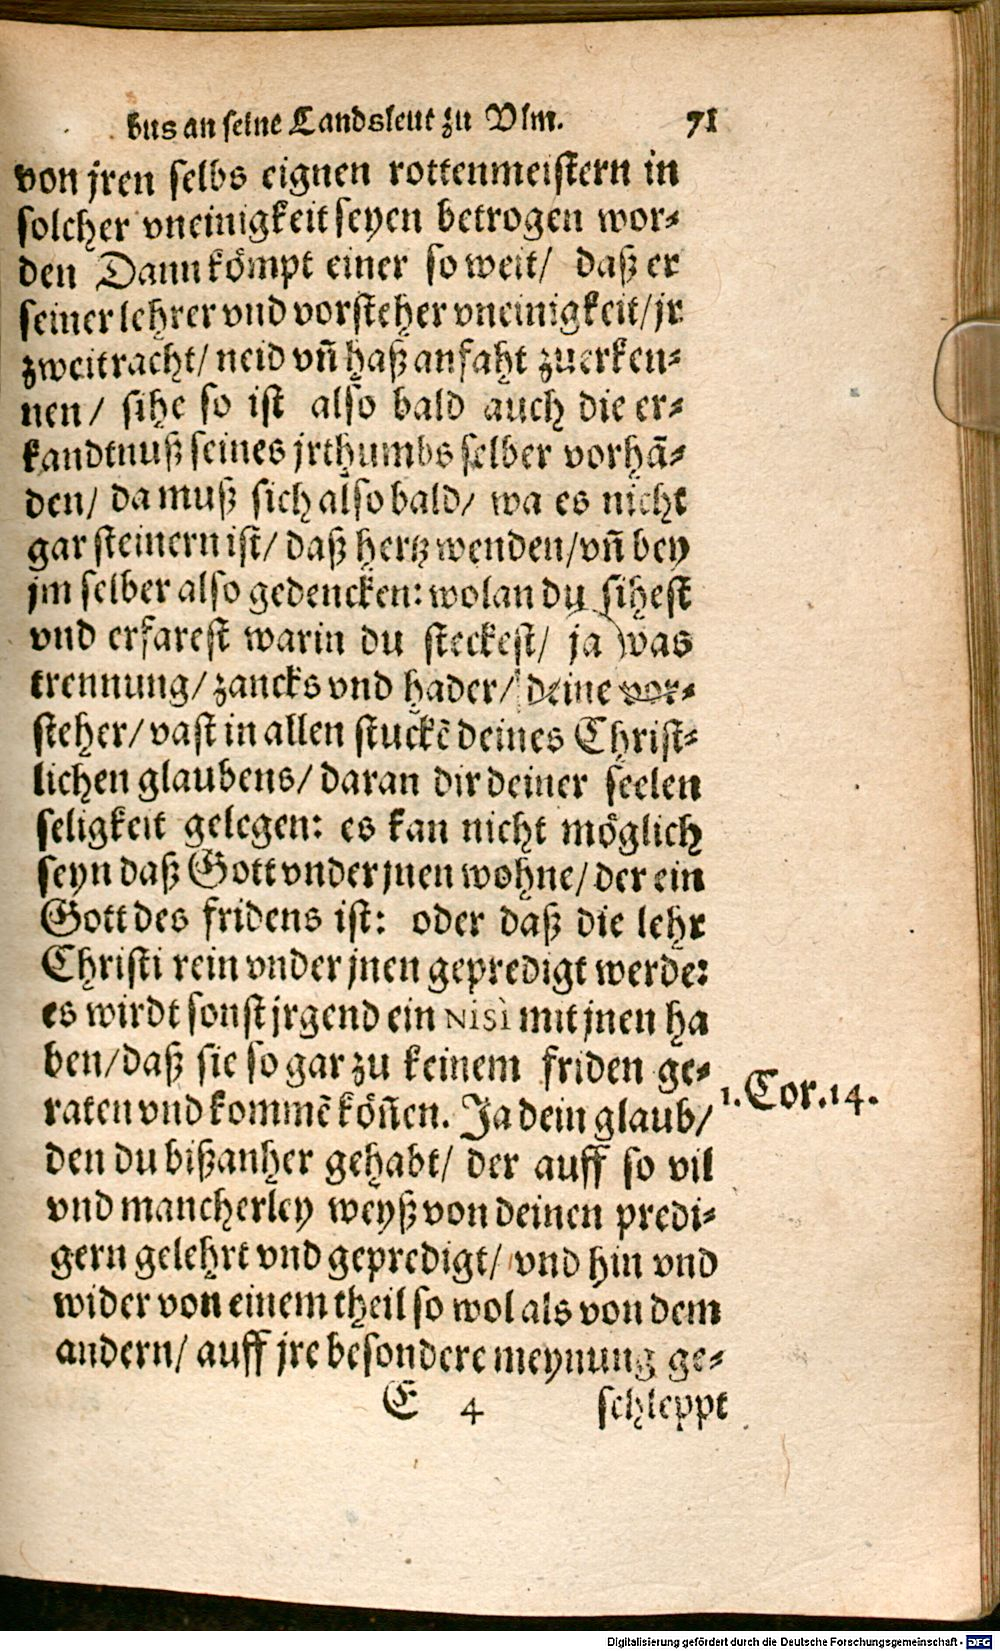 bus an seine Landsleut zu Vlm. 71
von jren selbs eignen rottenmeistern in
solcher vneinigkeit seyen betrogen wor-
den Dann kömpt einer so weit/ daß er
seiner lehrer vnd vorsteher vneinigkeit/ jr
zweitracht/ neid vñ haß anfaht zuerken-
nen/ sihe so ist also bald auch die er-
kandtnuß seines jrthumbs selber vorhã-
den/ da muß sich also bald/ wa es nicht
gar steinern ist/ daß hertz wenden/ vñ bey
jm selber also gedencken: wolan du sihest
vnd erfarest warin du steckest/ ja was
trennung/ zancks vnd hader/ deine vor-
steher/ vast in allen stuckẽ deines Christ-
lichen glaubens/ daran dir deiner seelen
seligkeit gelegen: es kan nicht möglich
seyn daß Gott vnder jnen wohne/ der ein
Gott des fridens ist: oder daß die lehr
Christi rein vnder jnen gepredigt werde:
es wirdt sonst jrgend ein NISI mit jnen ha
ben/ daß sie so gar zu keinem friden ge-
raten vnd kommẽ köñen. Ja dein glaub/
1. Cor. 14.
den du bißanher gehabt/ der auff so vil
vnd mancherley weyß von deinen predi-
gern gelehrt vnd gepredigt/ vnd hin vnd
wider von einem theil so wol als von dem
andern/ auff jre besondere meynung ge-
E 4 schleppt
Digitalisierung gefördert durch die Deutsche Forschungsgemeinschaft - DFG